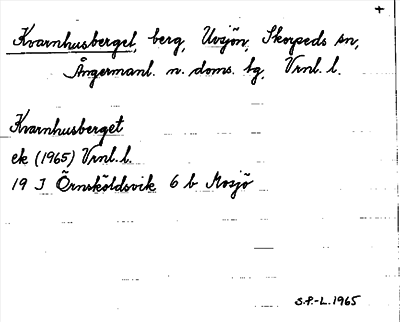 +
Kvarnhusberget, berg, Uvsjön, Skorpeds sn,
Ångermanl. n. doms. tg, Vrnl. l.
Kvarnhusberget
ek (1965) Vrnl. l.
19 J Örnsköldsvik 6 b Mosjö
S.P.-L. 1965